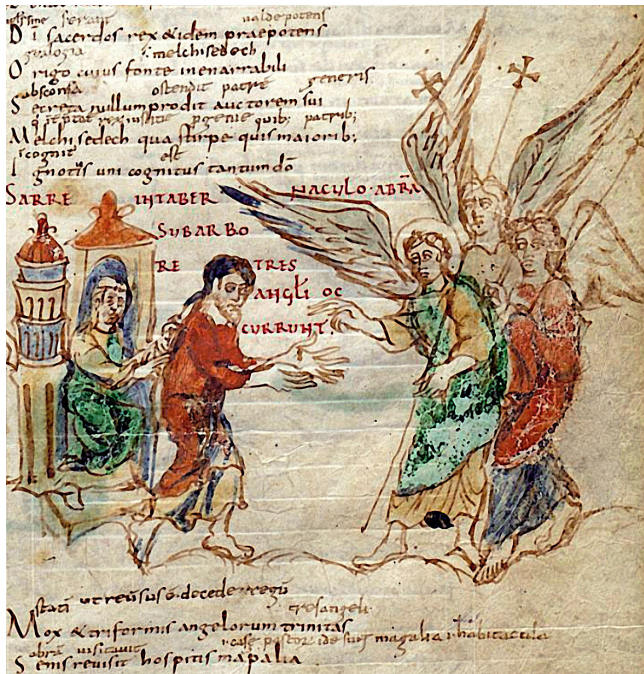 valde potens
Di sacerdos rex & idem praepotens
.i. melchisedech
Origo cuius fonte inenarrabili
absconsa ostendit patrē generis
Secreta nullum prodit auctorem sui
rex iustitie pgenie quib; patrib;
Melchisedech qua stirpe quis maiorib;
est
Ignotus uni cognitus tantum dō
SARRE INTABER NACVLO· ABRĀ
SVBARBO
RE TRES
ANGLI OC
CVRRVNT.
statī ut reūsus ē· de cede regū tres angeli
Mox & triformis angelorum trinitas
abrā visitauit .i. case pastor magalia .i. habitacula
Senis reuisit hospitis mapalia